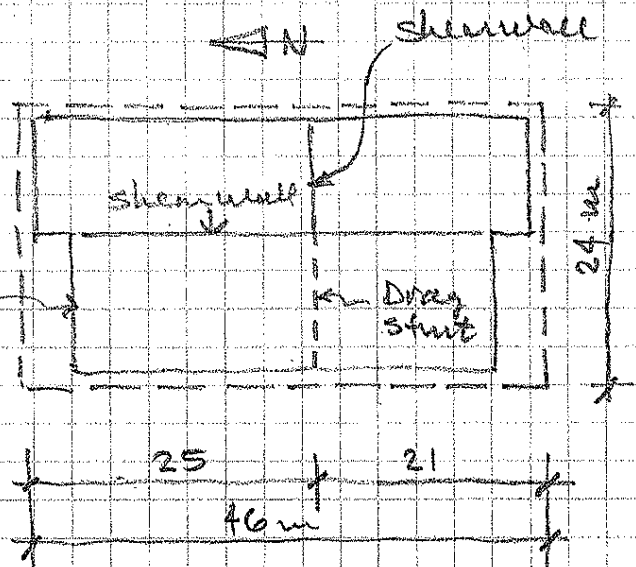 N
shearwall
shearwall
24 m
Drag
strut
25
21
46 m